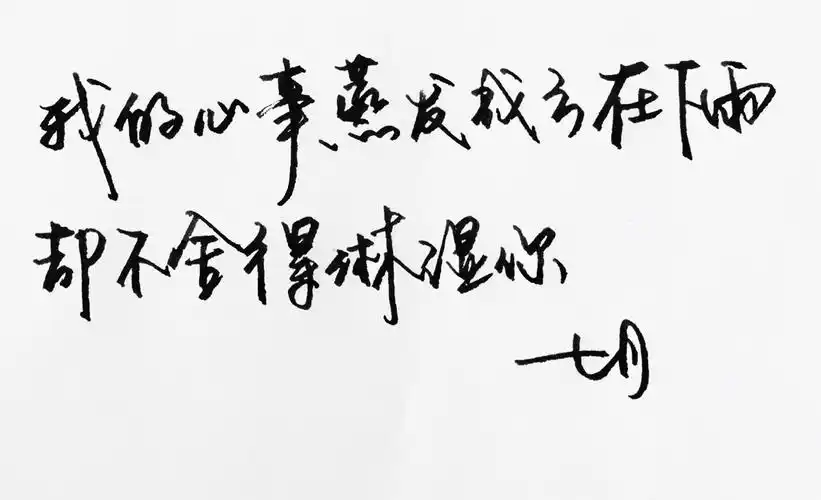 我的心事蒸发成云在下雨
却不舍得淋湿你
七月